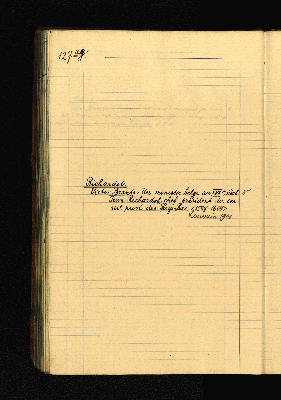 127
Richardot.
Victor Brants. Un ministre belge au XVIe siècle
Jean Richardot, chef président du con
seil privé des
Louvain 1901